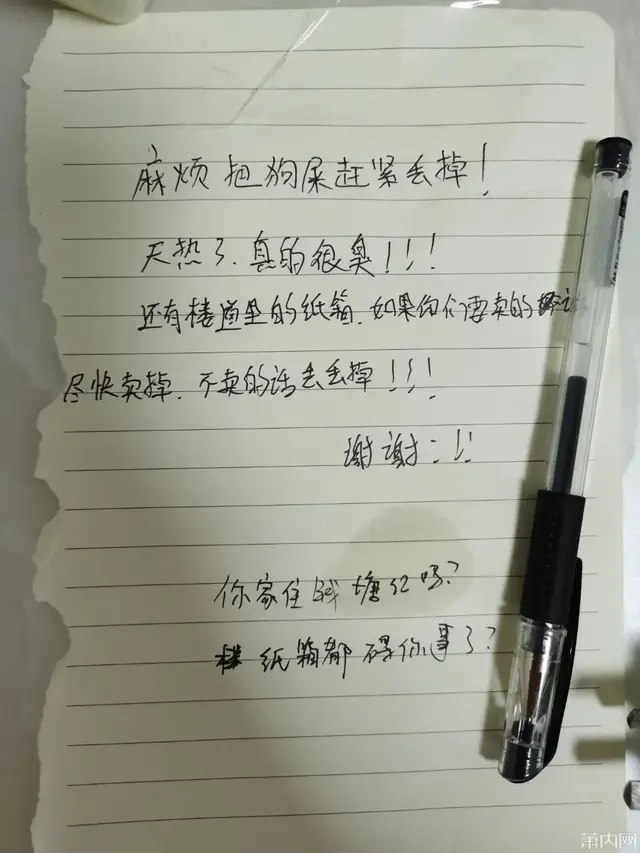 麻烦把狗屎赶紧丢掉！
天热了.真的很臭！！！
还有楼道里的纸箱.如果你们要卖的
尽快卖掉.不卖的话去丢掉！！！
谢谢:！！
你家住钱塘江吗？
纸箱都碍你事了？
萧内网